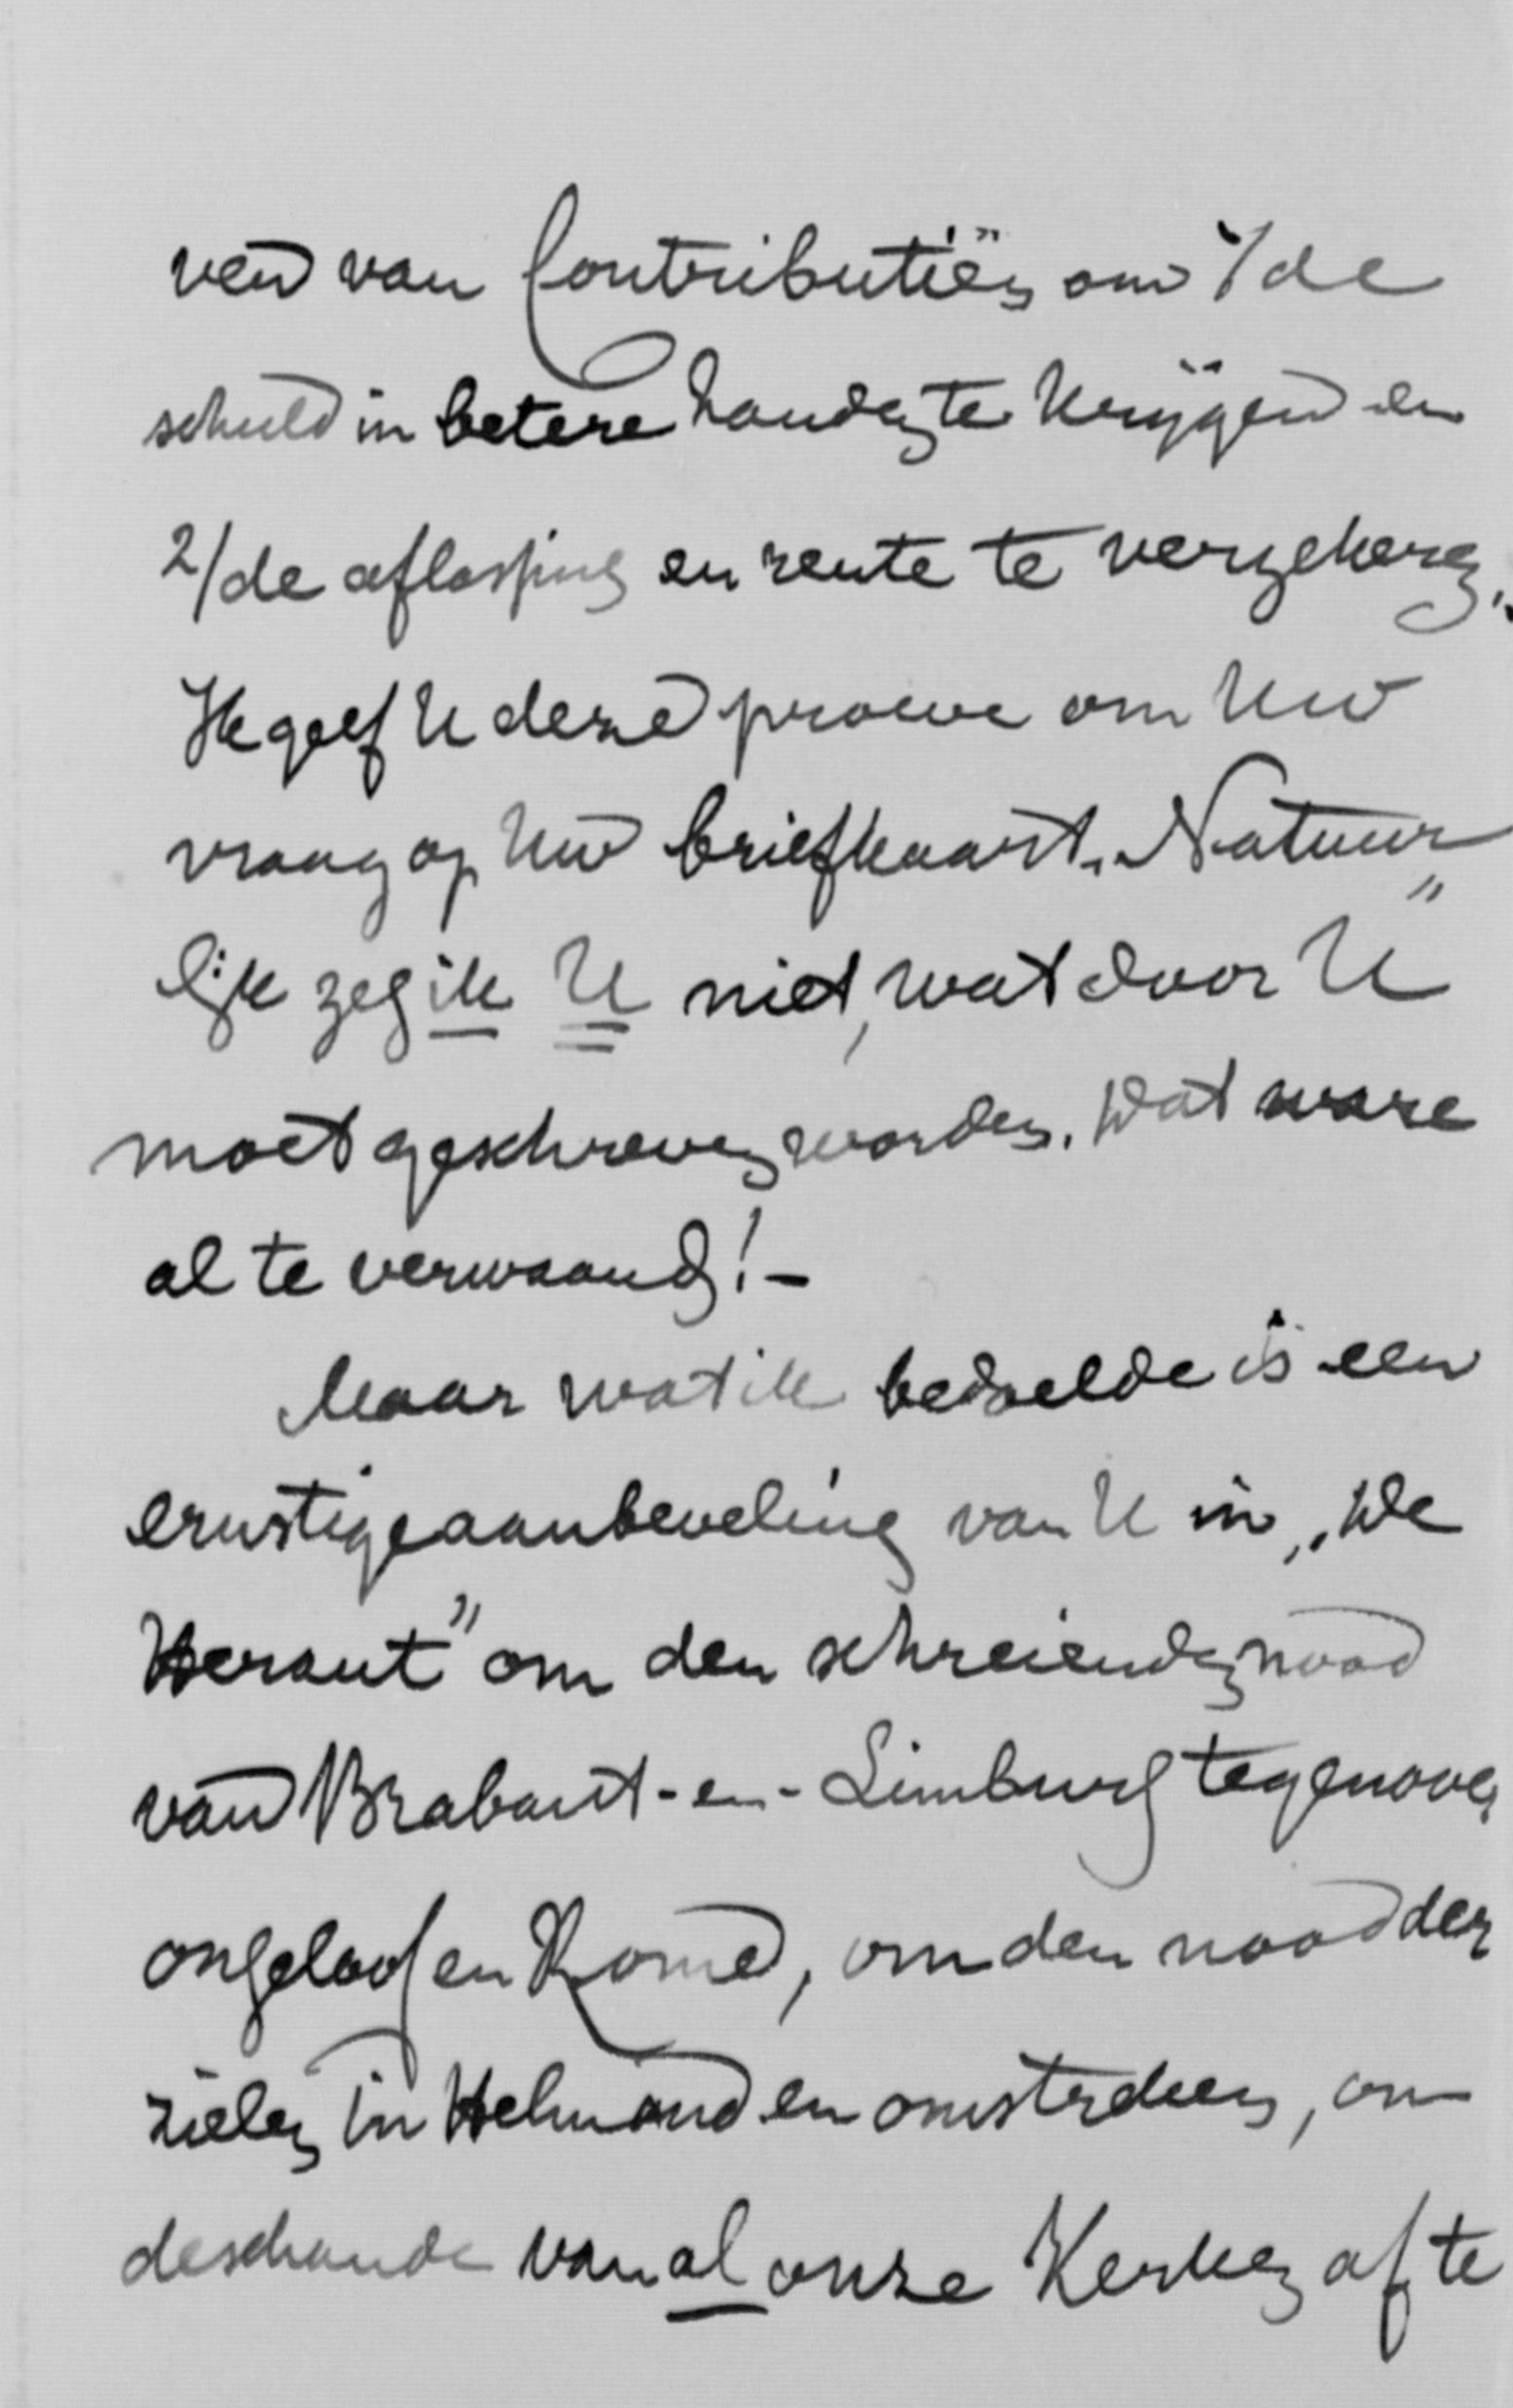 ven van Contributiën om 1/ de
schuld in betere handen te krijgen en
2/ de aflossing en rente te verzekeren.
Ik geef U deze proeve om Uw
vraag op Uw briefkaart. Natuur„
lijk zeg ik U niet, wat door U
moet geschreven worden. Dat ware
al te verwaand! –
Maar wat ik bedoelde is een
ernstige aanbeveling van U in „De
Heraut” om den schreienden nood
van Brabant-en-Limburg tegenover
ongeloof en Rome, om den nood der
zielen in Helmond en omstreken, om
de schande van al onze Kerken af te